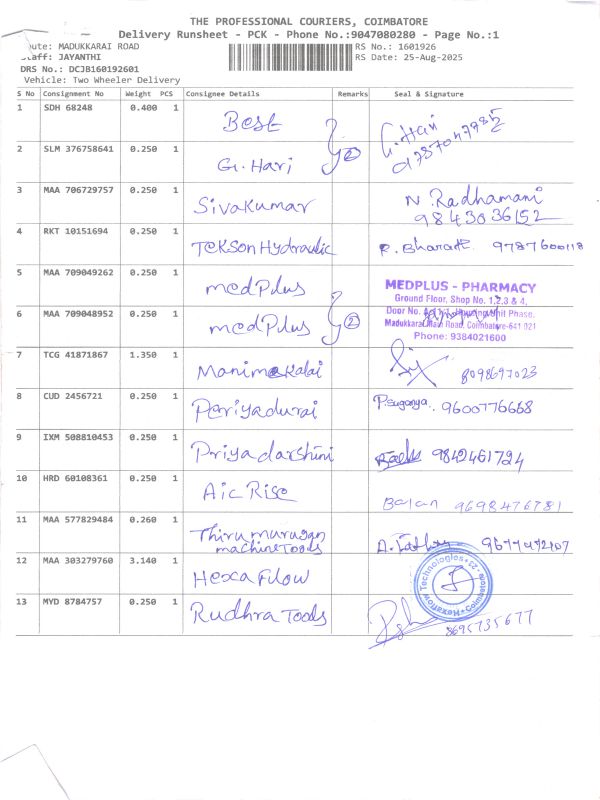 THE PROFESSIONAL COURIERS, COIMBATORE
Delivery Runsheet - PCK - Phone No.:9047080280 - Page No.:1
oute: MADUKKARAI ROAD
RS No.: 1601926
taff: JAYANTHI
RS Date: 25-Aug-2025
DRS No.: DCJB160192601
Vehicle: Two Wheeler Delivery
S No Consignment No Weight PCS Consignee Details Remarks Seal & Signature
1 SDH 68248 0.400 1 Best G. Hari
2 SLM 376758641 0.250 1 G. Hari 2
3 MAA 706729757 0.250 1 Sivakumar N. Radhamani
9843036152
4 RKT 10151694 0.250 1 Tekson Hydraulic R. Bharath 9787600118
5 MAA 709049262 0.250 1 medplus
MEDPLUS - PHARMACY
Ground Floor, Shop No. 1,2,3 & 4,
6 MAA 709048952 0.250 1 medplus 2
Door No. Housing Unit Phase,
Madukkarai Main Road, Coimbatore-641 021
Phone: 9384021600
7 TCG 41871867 1.350 1 Manimekalai 8098697023
8 CUD 2456721 0.250 1 Periyadurai P.suganya. 9600776668
9 IXM 508810453 0.250 1 Priyadarshini 9842461724
10 HRD 60108361 0.250 1 Aic Rise Balan 9698476781
11 MAA 577829484 0.260 1 Thirumurugan
machine Tools
12 MAA 303279760 3.140 1 Hexa Flow
Hexaflow Technologies Coimbatore
13 MYD 8784757 0.250 1 Rudhra Tools 8695735677